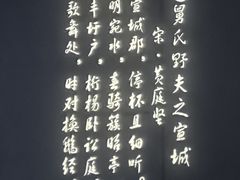 舅氏野夫之宣城
宋·黄庭坚
宣城郡，停杯且细听。
明宛水，春骑簇昭亭。
丰圩户，桁杨卧讼庭。
歌舞处，时对换鹅经。